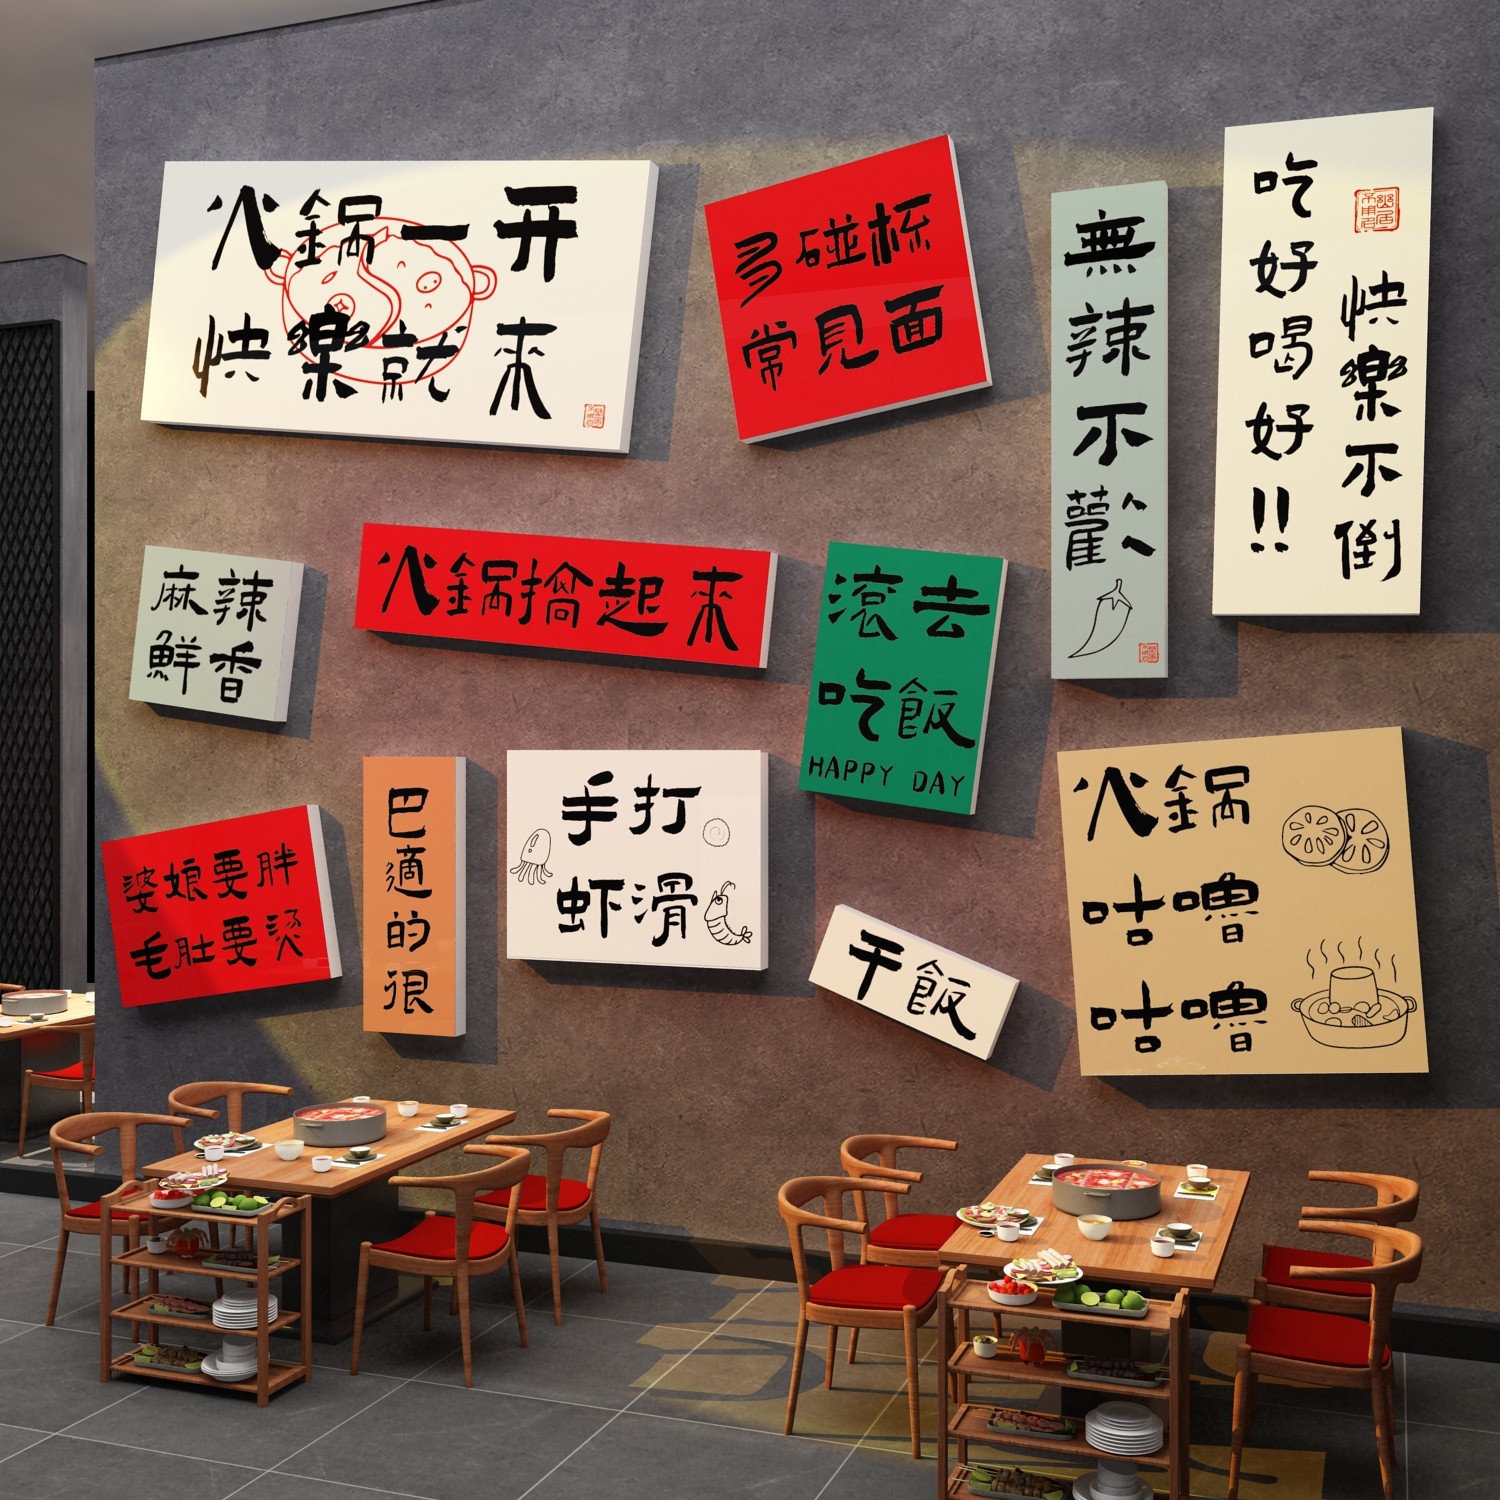 火鍋一开
快樂就来
多碰杯
常見面
無辣不歡
吃好喝好!!
快樂不倒
麻辣
鮮香
火鍋搞起来
滾去
吃飯
HAPPY DAY
婆娘要胖
毛肚要烫
巴適的很
手打
虾滑
干飯
火鍋
咕嚕
咕嚕